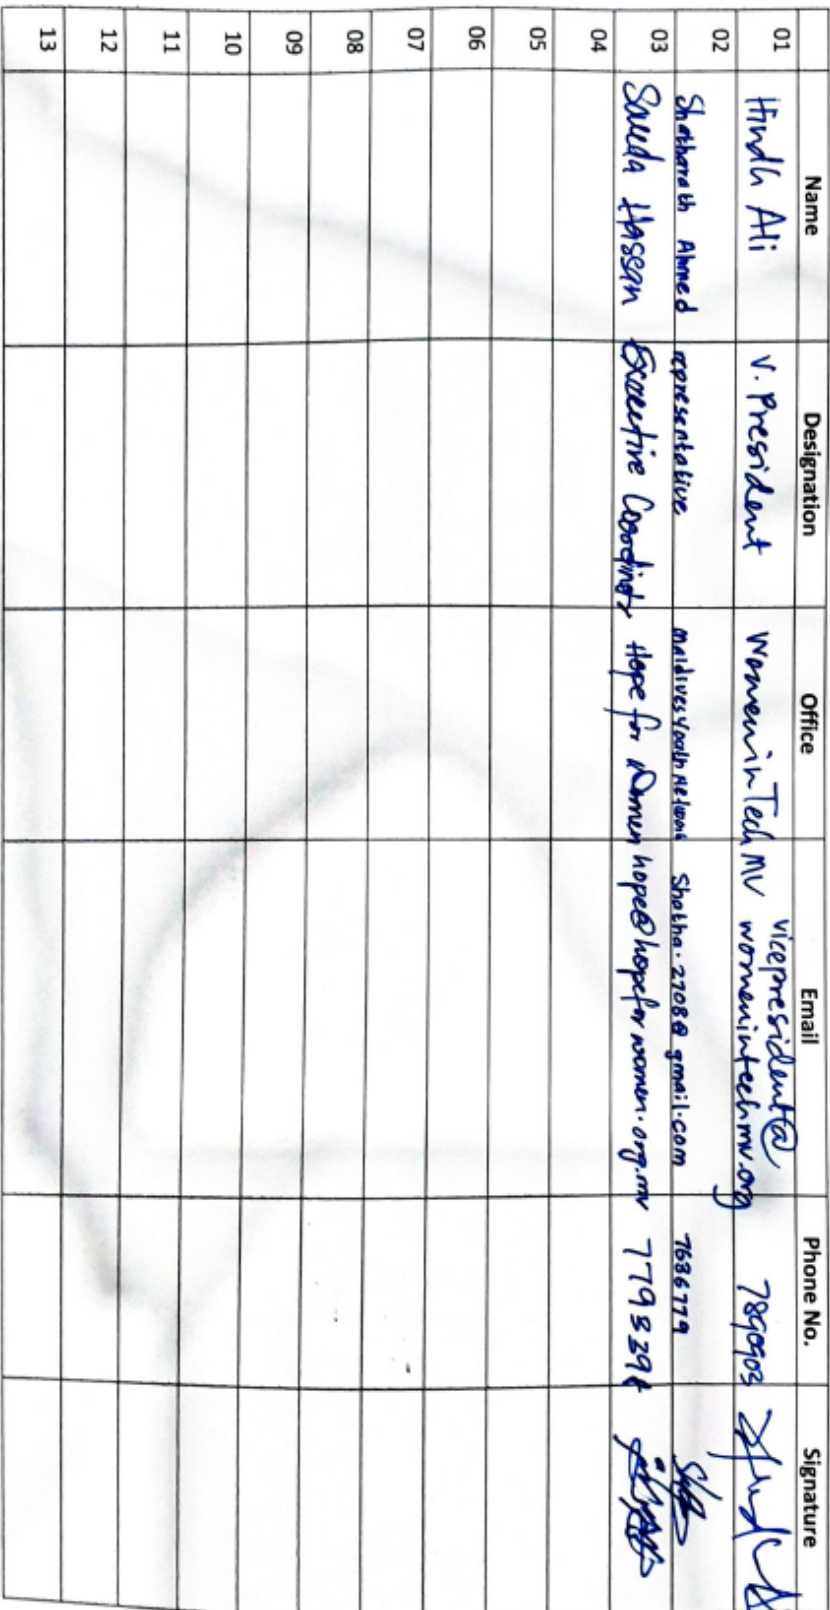 Name Designation Office Email Phone No. Signature
01 Hindh Ali V. President Women in Tech MV vicepresident@
womenintechmv.org 7890903
02 Shatharath Ahmed representative Maldives Youth Network Shatha.2708@gmail.com 7636779
03 Sauda Hassan Executive Coordinator Hope for Women hope@hopeforwomen.org.mv
04
05
06
07
08
09
10
11
12
13